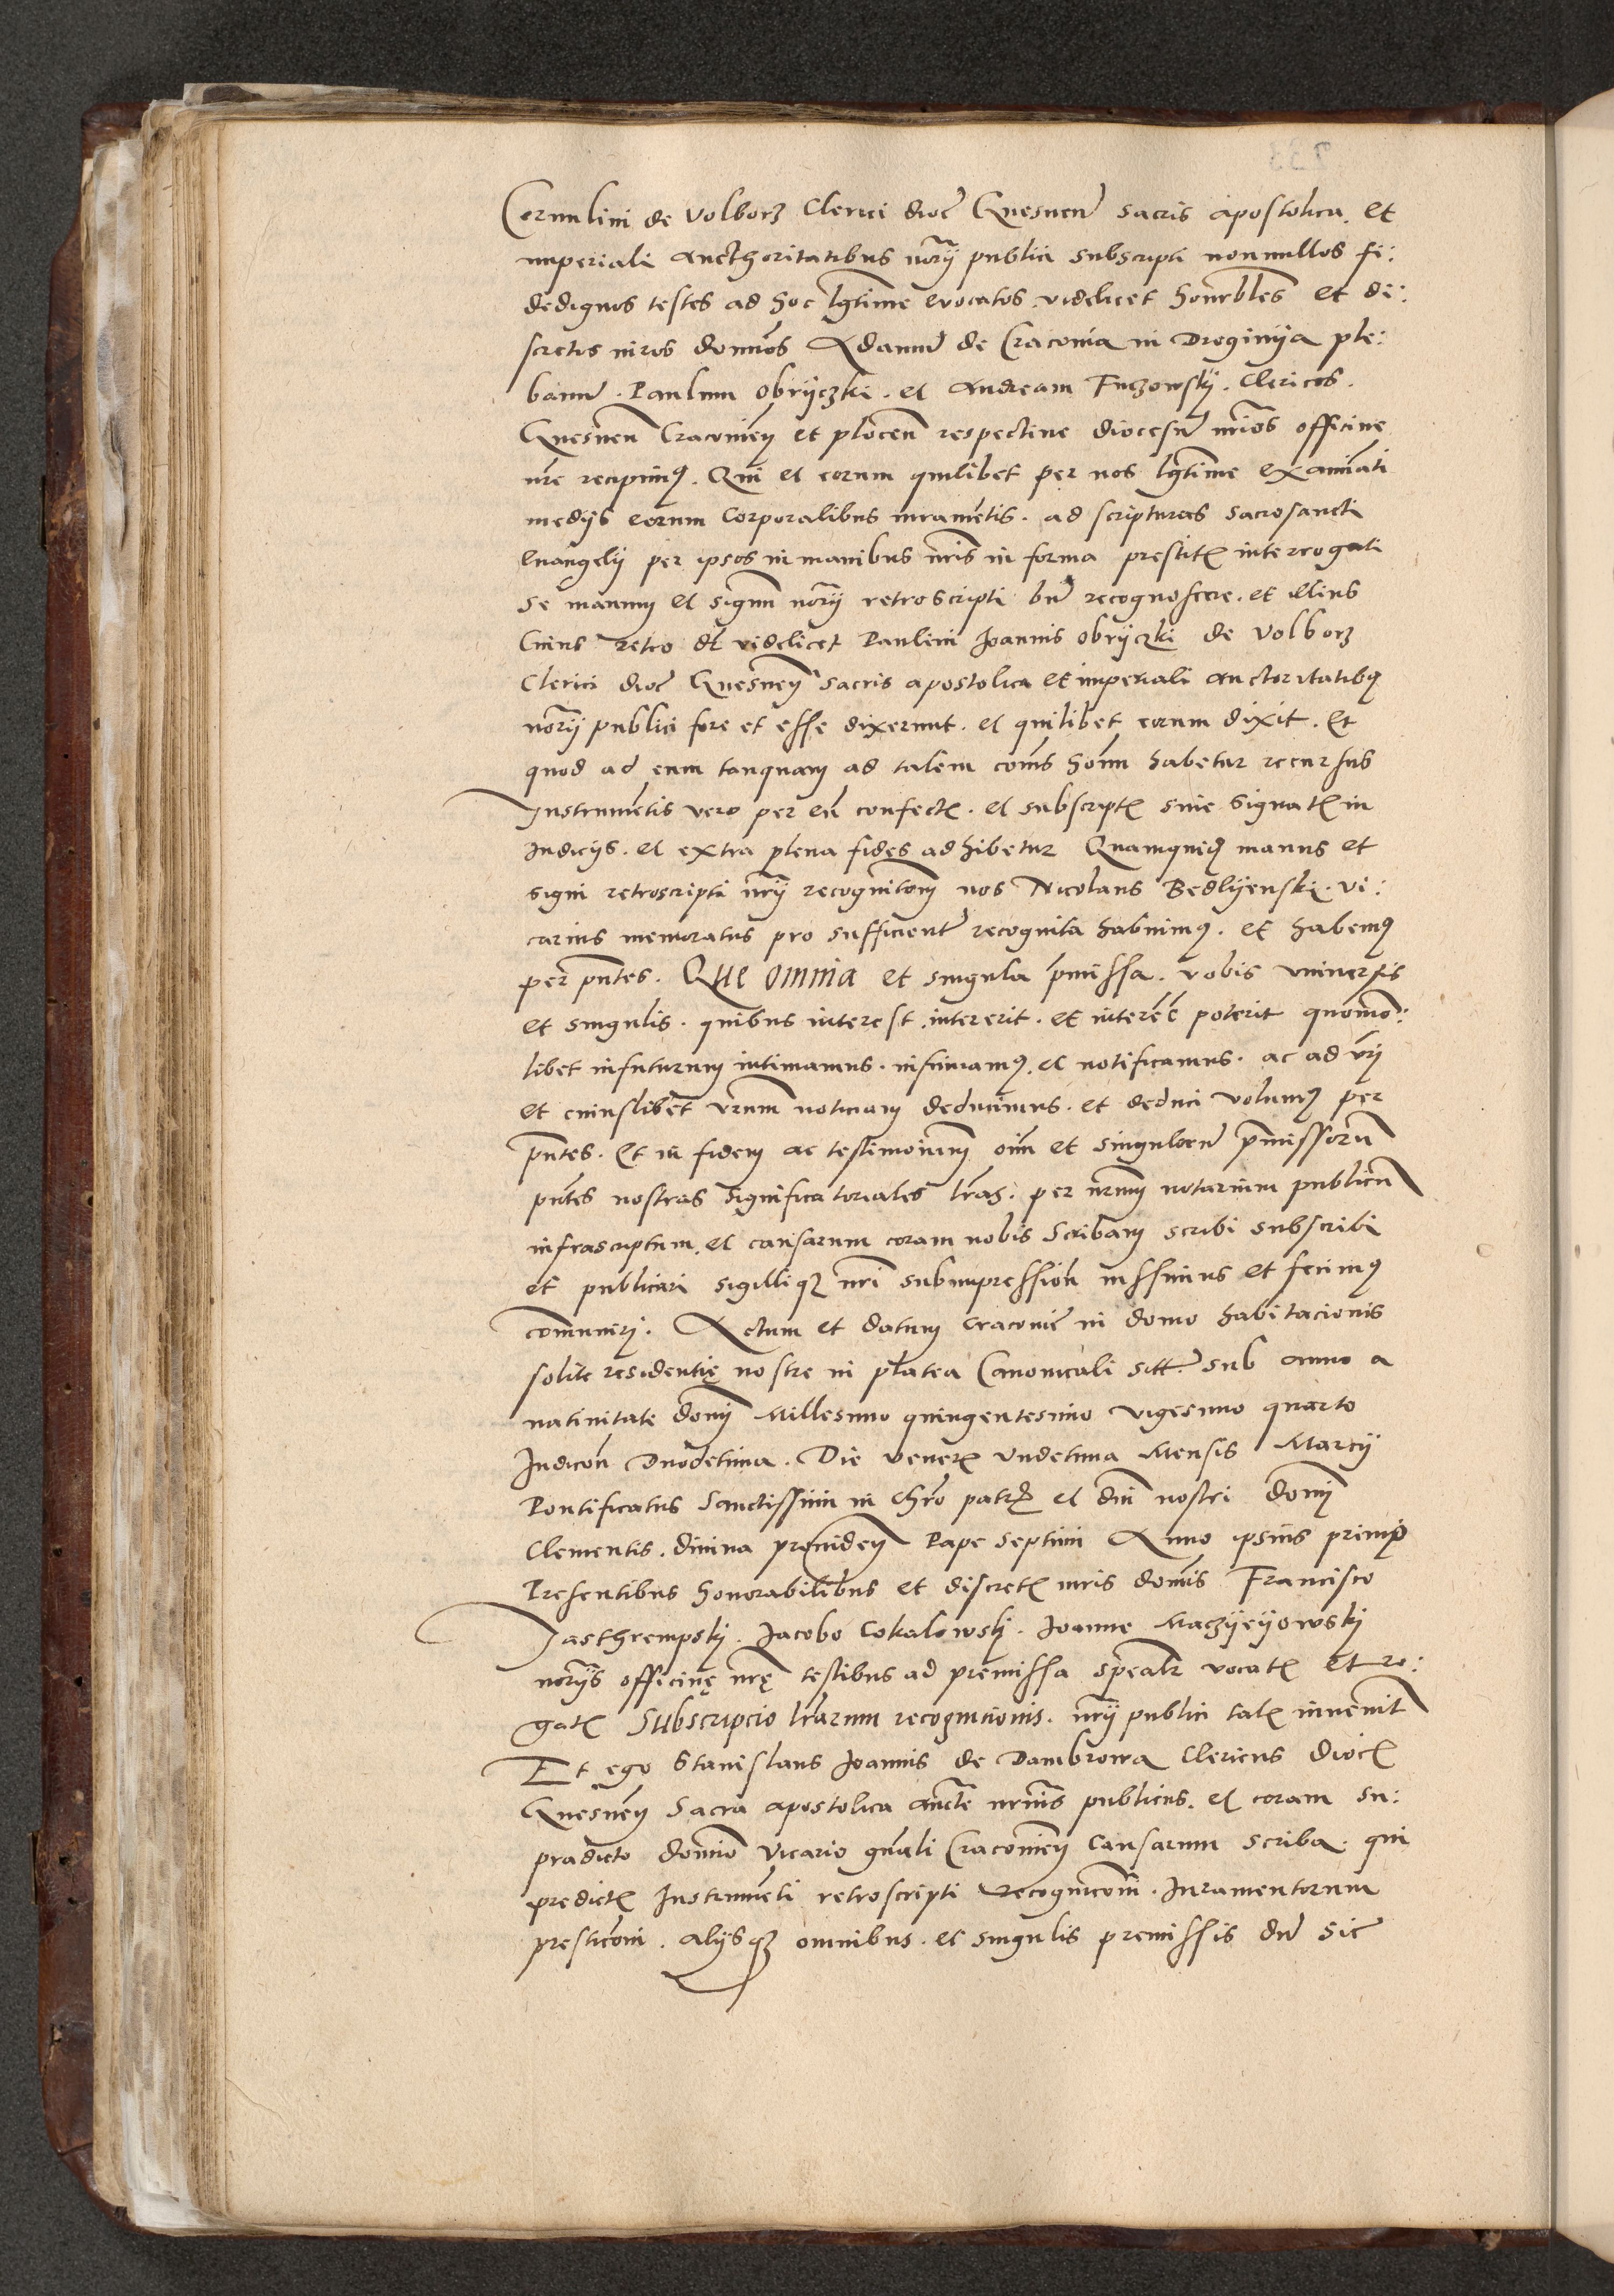 Cerulini de Volborz Clerici dioc̄ Gnesnen̄ sacris apostolica et
imperiali aucthoritatibus nōrij publici subscripti nonnullos fi:
dedignos testes ad hoc lḡtime evocatos videlicet honrbles et di:
scretos viros domnos Adamū de Cracovia in Droginija ple:
banū . Paulum Obrijczki . et Andream Fuczowskij . Clericos .
Gnesnen̄ Cracovieñ et plocen̄ respective diocesū nrios officine
nr̄e recepimꝰ . Qui et eorum quilibet per nos lḡtime examīati
medijs eorum corporalibus iuramētis . ad scripturas sacrosancti
evangelij per ipsos in manibus nr̄is in forma prestitꝭ interrogati
se manum et signū nōrij retroscripti bn̄ recognoscere . et illius
Cuius retro dt̄ videlicet Paulini Joannis obrijczki de Volborz
Clerici dioc̄ Gnesneñ sacris apostolica et imperiali auctoritatibꝰ
nōrij publici fore et esse dixerunt . et quilibet eorum dixit . Et
quod ad eum tanquam ad talem com̄s hom̄ habetur recursus
Instrumētis vero per eū confectꝭ . et subscriptꝭ sive signatꝭ in
Iudicijs . et extra plena fides adhibetur Quamquidꝫ manus et
signi retroscripti nr̄ij recognitom̄ nos Nicolaus Bedlijenski . vi:
carius memoratus pro sufficienter recognita habuimꝰ . et habemꝰ
per pn̄tes . Que omnia et singula p̄missa . vobis universis
et singulis . quibus interest . intererit . et interēē poterit quomō:
libet in futurum intimamus . insinuamꝰ et notificamus . ac ad vr̄i
et cuiuslibet vr̄um notitiam deducimus . et deduci volumꝰ per
pn̄tes . Et in fidem ac testimonium oīm et singulorū p̄missorū
pn̄tes nostras significatoriales lr̄as . per nr̄um notarium publicū
infrascriptum et causarum coram nobis Scribam scribi subscribi
et publicari sigilliqꝫ nr̄i subimpression̄ iussimus et fecimꝰ
communiri . Actum et datum Cracovie in domo habitacionis
solite residentię nostre in platea Canonicali sitt̄ sub anno a
nativitate domī Millesimo quingentesimo vigesimo quarto
Indicon̄ Duodetima . Die venerꝭ Undetima Mensis Marcij
Pontificatus Sanctissimi in chr̄o patrꝭ et dn̄i nostri domī
Clementis . divina provideñ Pape Septimi Anno ipsius primo
Presentibus honorabilibus et discretꝭ viris dom̄is Francisco
Jasthrempskj . Jacobo Cokalowskj . Joanne Maczijeijowskj
norijs officinę nr̄ę testibus ad premissa speālr vocatꝭ et ro:
gatꝭ Subscripcio lr̄arum recognicionis . nr̄ij publici talꝭ invenit
Et ego Stanislaus Joannis de Dambrowa Clericus diocꝭ
Gnesneñ Sacra apostolica aucte nr̄ius publicus . et coram su:
pradicto domīo Vicario gn̄ali Cracovieñ Causarum scriba . qui
predictꝭ Instrumēti retroscripti recognicom̄ . Iuramentorum
presticom̄ . alijsqꝫ omnibus . et singulis premissis dū sic̄